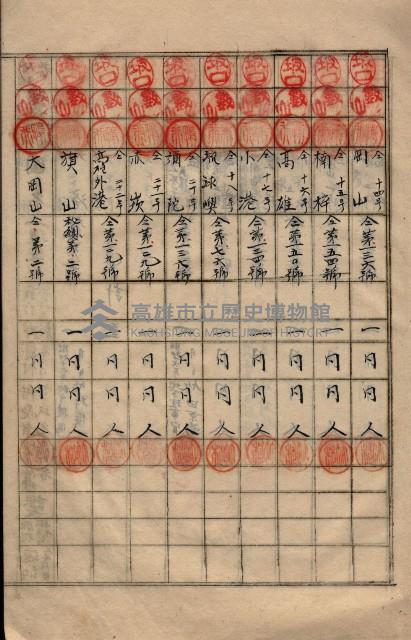 岡山 仝十四号 仝第三六號 一 円 円 人
楠梓 仝十五号 仝第一五四號 一 円 円 人
高雄 仝十六号 仝第一五〇號 一 円 円 人
小港 仝十七号 仝第一三四號 一 円 円 人
琉球嶼 仝十八号 仝第七六號 一 円 円 人
彌陀 仝二十号 仝第三六號 一 円 円 人
赤崁 仝二一号 仝第一〇九號 一 円 円 人
高雄外港 仝二十二号 仝第一〇九號 一 円 円 人
旗山 秘總第二號 一 円 円 人
大岡山 仝第二號 一 円 円 人
高雄市立歷史博物館
KAOHSIUNG MUSEUM OF HISTORY